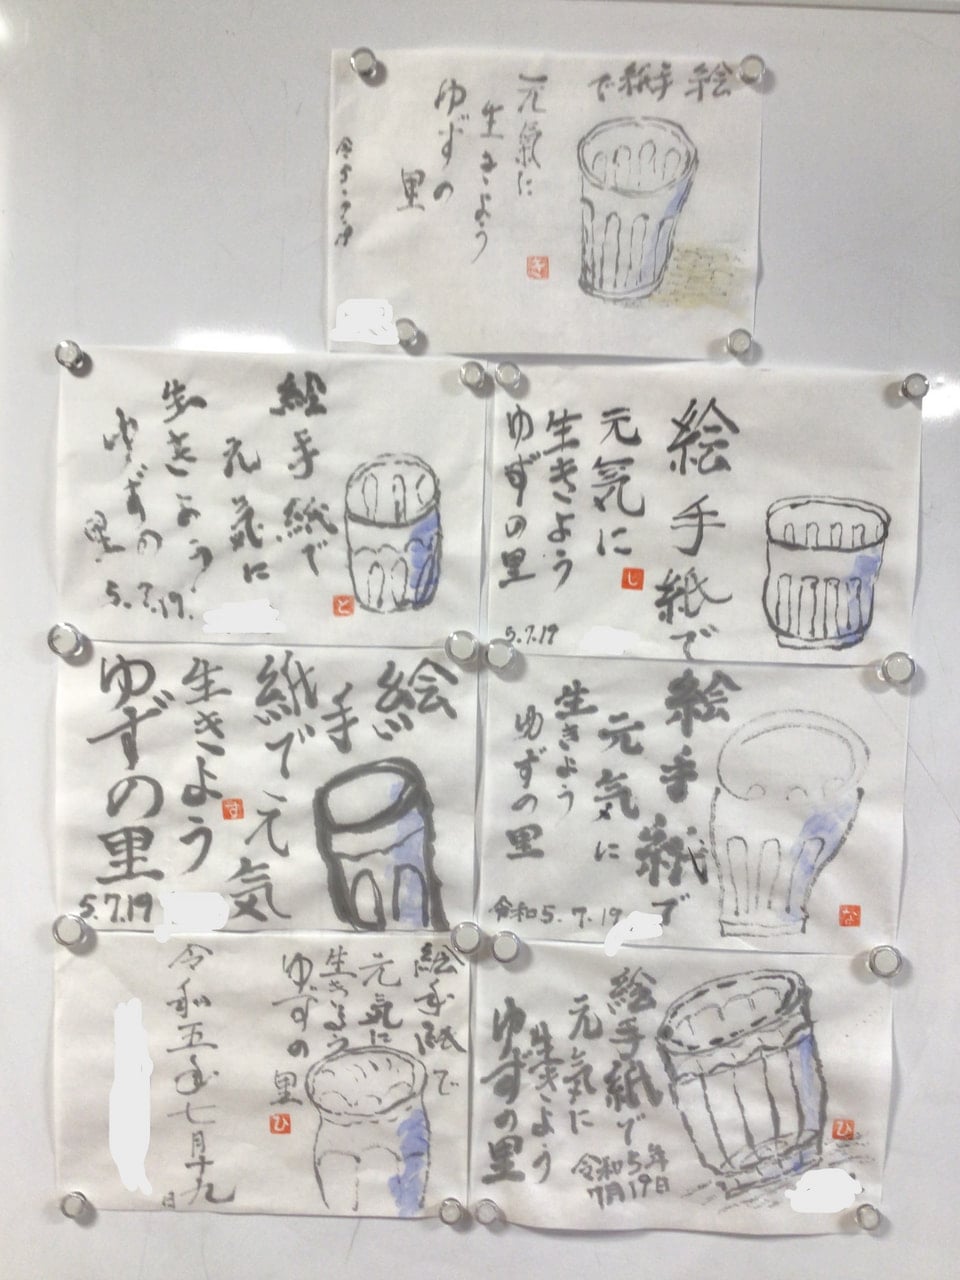 絵手紙で
元氣に
生きよう
ゆずの
里
令5.7.19
き
絵手紙で
元気に
生きよう
ゆずの
里
5.7.19.
と
絵手紙で
元気に
生きよう
ゆずの里
5.7.19
し
絵手
紙で元気
生きよう
ゆずの里
5.7.19
す
絵手紙で
元気に
生きよう
ゆずの里
令和5.7.19
な
絵手紙で
元気に
生きよう
ゆずの
里
令和五年七月十九日
ひ
絵手紙で
元気に
生きよう
ゆずの里
令和5年
7月19日
ひ